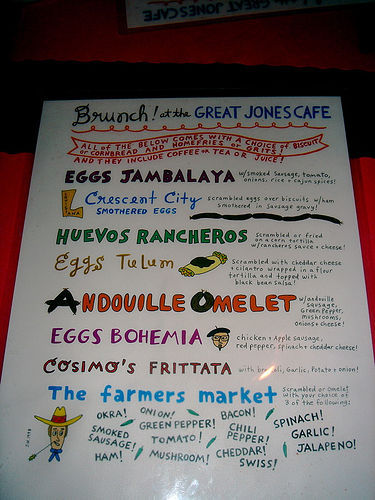 GREAT JONES CAFE
Brunch! at the GREAT JONES CAFE
ALL OF THE BELOW COMES WITH A CHOICE OF BISCUIT
OR CORNBREAD AND HOMEFRIES OR GRITS!
AND THEY INCLUDE COFFEE OR TEA OR JUICE!
EGGS JAMBALAYA w/smoked sausage, tomato,
onions, rice + cajun spices!
Crescent City scrambled eggs over biscuits w/ham
SMOTHERED EGGS smothered in sausage gravy!
HUEVOS RANCHEROS scrambled or fried
on a corn tortilla
w/rancheros sauce + cheese!
Eggs Tulum scrambled with cheddar cheese
+ cilantro wrapped in a flour
tortilla and topped with
black bean salsa!
ANDOUILLE OMELET w/andouille
sausage,
Green Pepper,
mushrooms,
onions + cheese!
EGGS BOHEMIA chicken + Apple sausage,
red pepper, spinach + cheddar cheese!
COSIMO'S FRITTATA with broccoli, Garlic, Potato + onion!
The farmers market Scrambled or Omelet
with your choice of
3 of the following:
OKRA! ONION! BACON! SPINACH!
SMOKED SAUSAGE! GREEN PEPPER! CHILI PEPPER! GARLIC!
HAM! TOMATO! MUSHROOM! CHEDDAR! SWISS! JALAPENO!